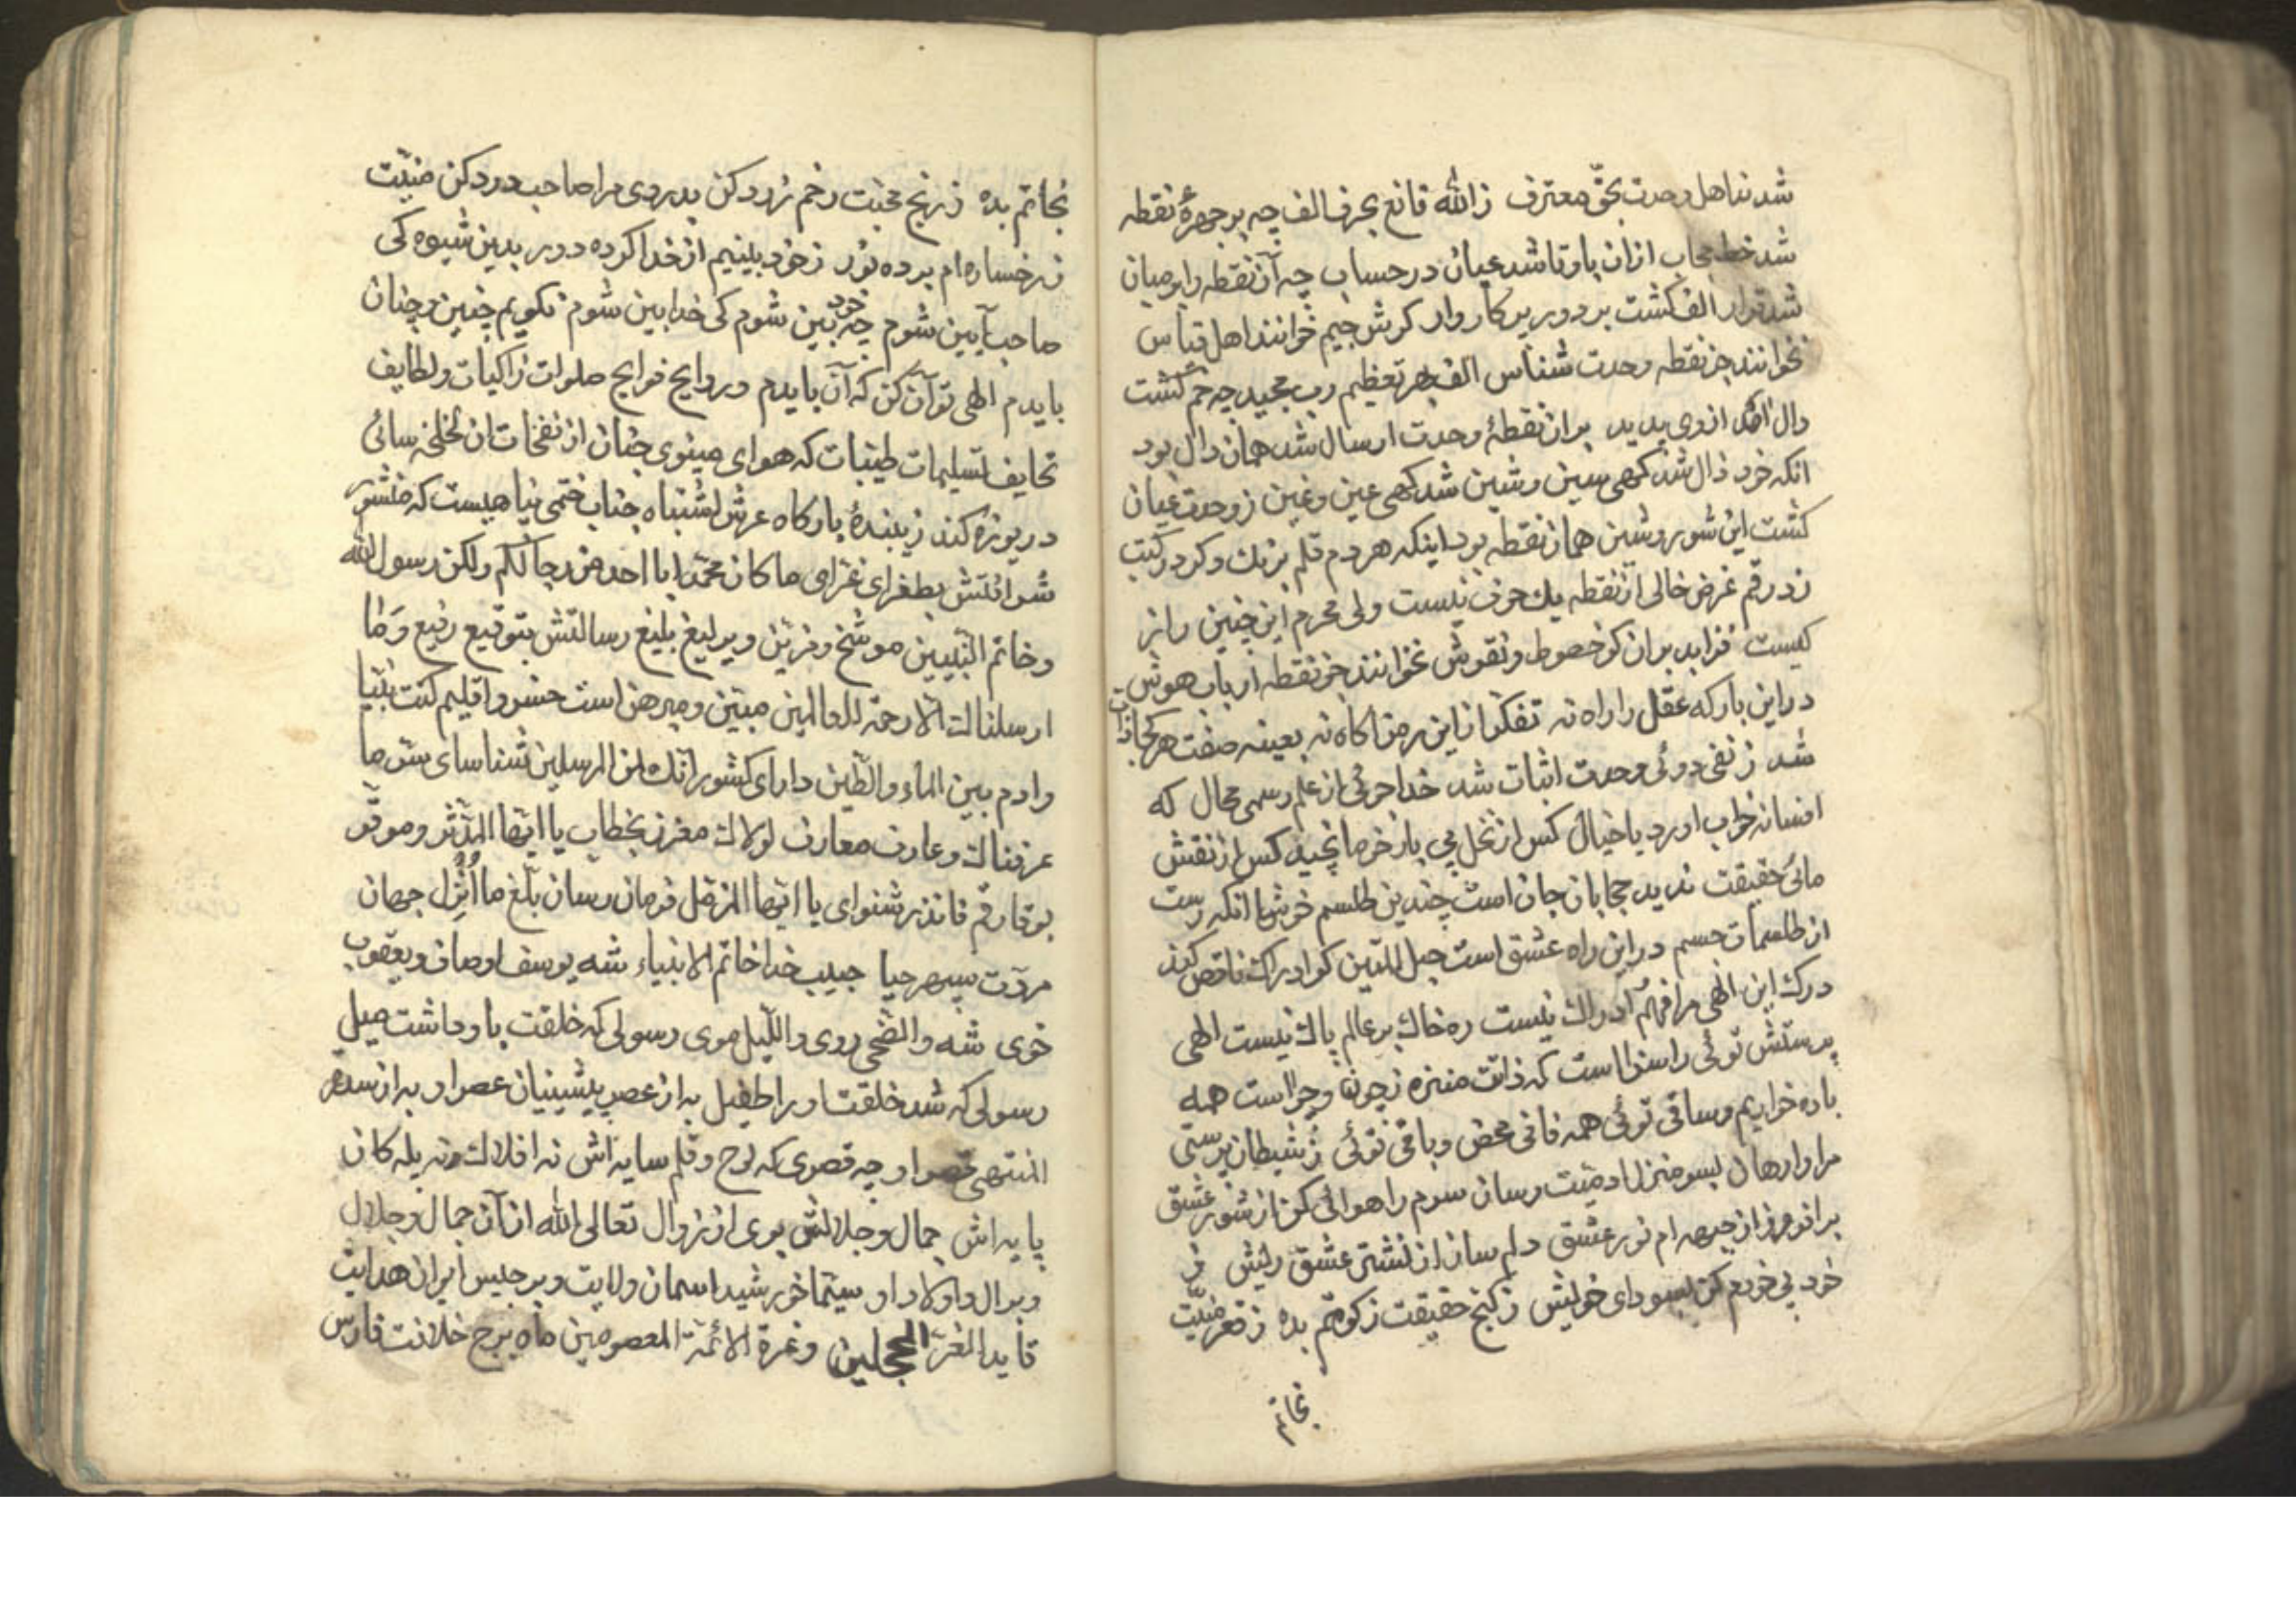 شدند اهل وحدت بحق معترف زالله قانع بحرف الف چه بر چهرهٔ نقطه
شد خط حجاب ازان با و تا شد عیان در حساب چه آن نقطه را بر میان
شد قرار الف کشت بر دور پرکار وار کرش جیم خوانند اهل قیاس
نخوانند جز نقطه وحدت شناس الف بهر تعظیم رب مجید چه خم کشت
دال آمد ازوی پدید بران نقطهٔ وحدت ارسال شد همان دال بود
انکه خود ذال شد کهی سین و شین شد کهی عین و غین ز وحدت عیان
کشت این شور و شین همان نقطه بود اینکه هر دم قلم بزنک دکر در کتب
زد رقم غرض خالی از نقطه یك حرف نیست ولی محرم این چنین راز
کیست فزاید بران کو خصوط و نقوش نخوانند جز نقطه ارباب هوش
دراین بارکه عقل را راه نه تفکر ازین رمز آکاه نه بعینه صفت هر کجا ذات
شد ز نفی دوئی وحدت اثبات شد خدا جوئی از علم رسمی محال که
افسانه خواب اورد یا خیال کس از نخل بی بار خرما نچید کس از نقش
مانی حقیقت ندید حجابان جان است چندین طلسم خوش انکه رست
از طلسمات جسم دراین راه عشق است حبل المتین کو ادراك ناقص کند
درك این الهی مرا فهم ادراك نیست ره خاك بر عالم پاك نیست الهی
پرستش توئی را سزا است که ذاتت منزه ز چون و چرا است همه
باده خواریم و ساقی توئی همه فانی محض و باقی توئی ز شیطان پرستی
مرا وارهان بسر منزل ادمیت رسان سرم را هوائی کن از شور عشق
برافروز از چهره ام نور عشق دلم ساز از نشتر عشق ریش ز
خود بی خودم کن بسودای خویش ز کنج حقیقت زکوتم بده ز قعر منیت
نجاتم
نجاتم بده ز رنج محبت رخم زرد کن بدردی مرا صاحب درد کن منیت
ز رخساره ام برده نور ز خود بینیم از خدا کرده دور بدین شیوه کی
صاحب آیین شوم چه خود بین شوم کی خدا بین شوم نکویم چنین و چنان
بایدم الهی تو آن کن که آن بایدم و روایح فوایح صلوات زاکیات و لطایف
تحایف تسلیمات طیبات که هوای مینوی جنان از نفخات ان لخلخه سائی
دریوزه کند زیبندهٔ بارکاه عرش اشتباه جناب ختمی پناهیست که منشور
شرافتش بطغرای غرای ما کان محمد ابا احد من رجالکم ولکن رسول الله
و خاتم النبیین موشخ و مزین و یرلیغ بلیغ رسالتش بتوقیع رفیع وَمٰا
ارسلناك الا رحمة للعالمین مبین و مبرهن است خسرو اقلیم کنت نبیا
وادم بین الماء والطین دارای کشور انك لمن المرسلین شناسای سر ما
عرفناك و عارف معارف لولاك مغرز بخطاب یا ایها المدثر و موقر
بوقار قم فانذر شنوای یا ایها المزمل فرمان رسان بلغ ما اُنْزِل جهان
مروت سپهر حیا حبیب خدا خاتم الانبیاء شه یوسف اوصاف و یعقوب
خوی شه والضحی روی واللیل موی رسولی که خلقت باو داشت میل
رسولی که شد خلقت او را طفیل به از عصر پیشینیان عصر او به از سدرة
المنتهی قصر او چه قصری که لوح و قلم سایه اش نه افلاك نه پله کان
پایه اش جمال و جلالش بری از زوال تعالی الله از آن جمال و جلال
و بر ال و اولاد او سیما خورشید اسمان ولایت و برجیس ایران هدایت
قاید الغر المحجلین و غرة الائمة المعصومین ماه برج خلافت فارس